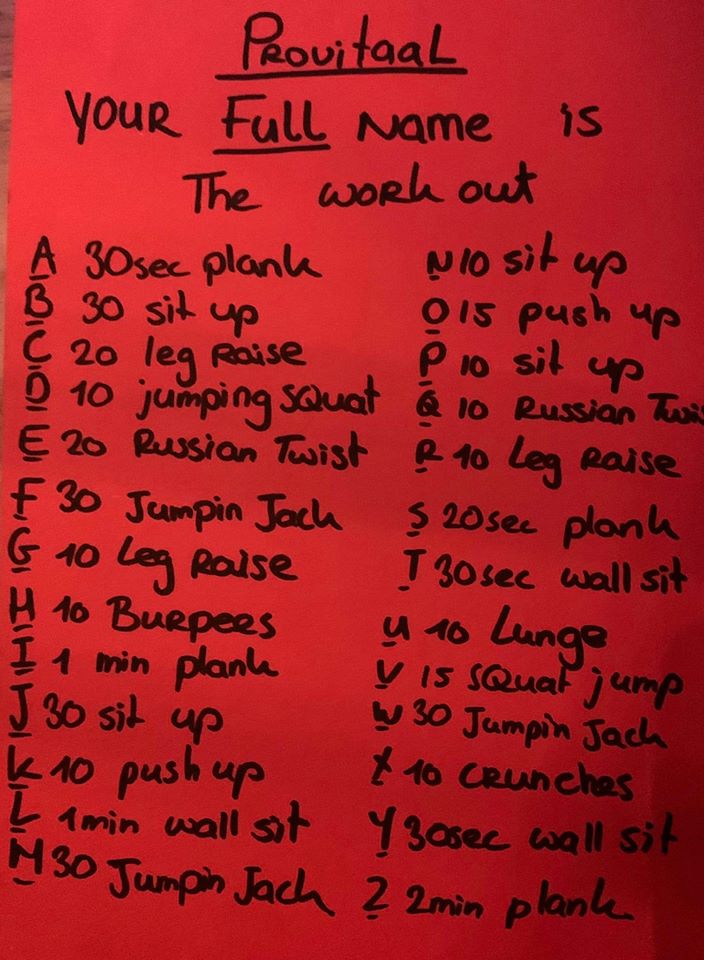 Provitaal
YOUR Full Name is
The work out
A 30sec plank
B 30 sit up
C 20 leg Raise
D 10 jumping SQuat
E 20 Russian Twist
F 30 Jumpin Jack
G 10 Leg Raise
H 10 Burpees
I 1 min plank
J 30 sit up
K 10 push up
L 1min wall sit
M 30 Jumpin Jack
N 10 sit up
O 15 push up
P 10 sit up
Q 10 Russian Twis
R 10 Leg Raise
S 20sec plank
T 30sec wall sit
U 10 Lunge
V 15 SQuat jump
W 30 Jumpin Jack
X 10 CRunches
Y 30sec wall sit
Z 2min plank